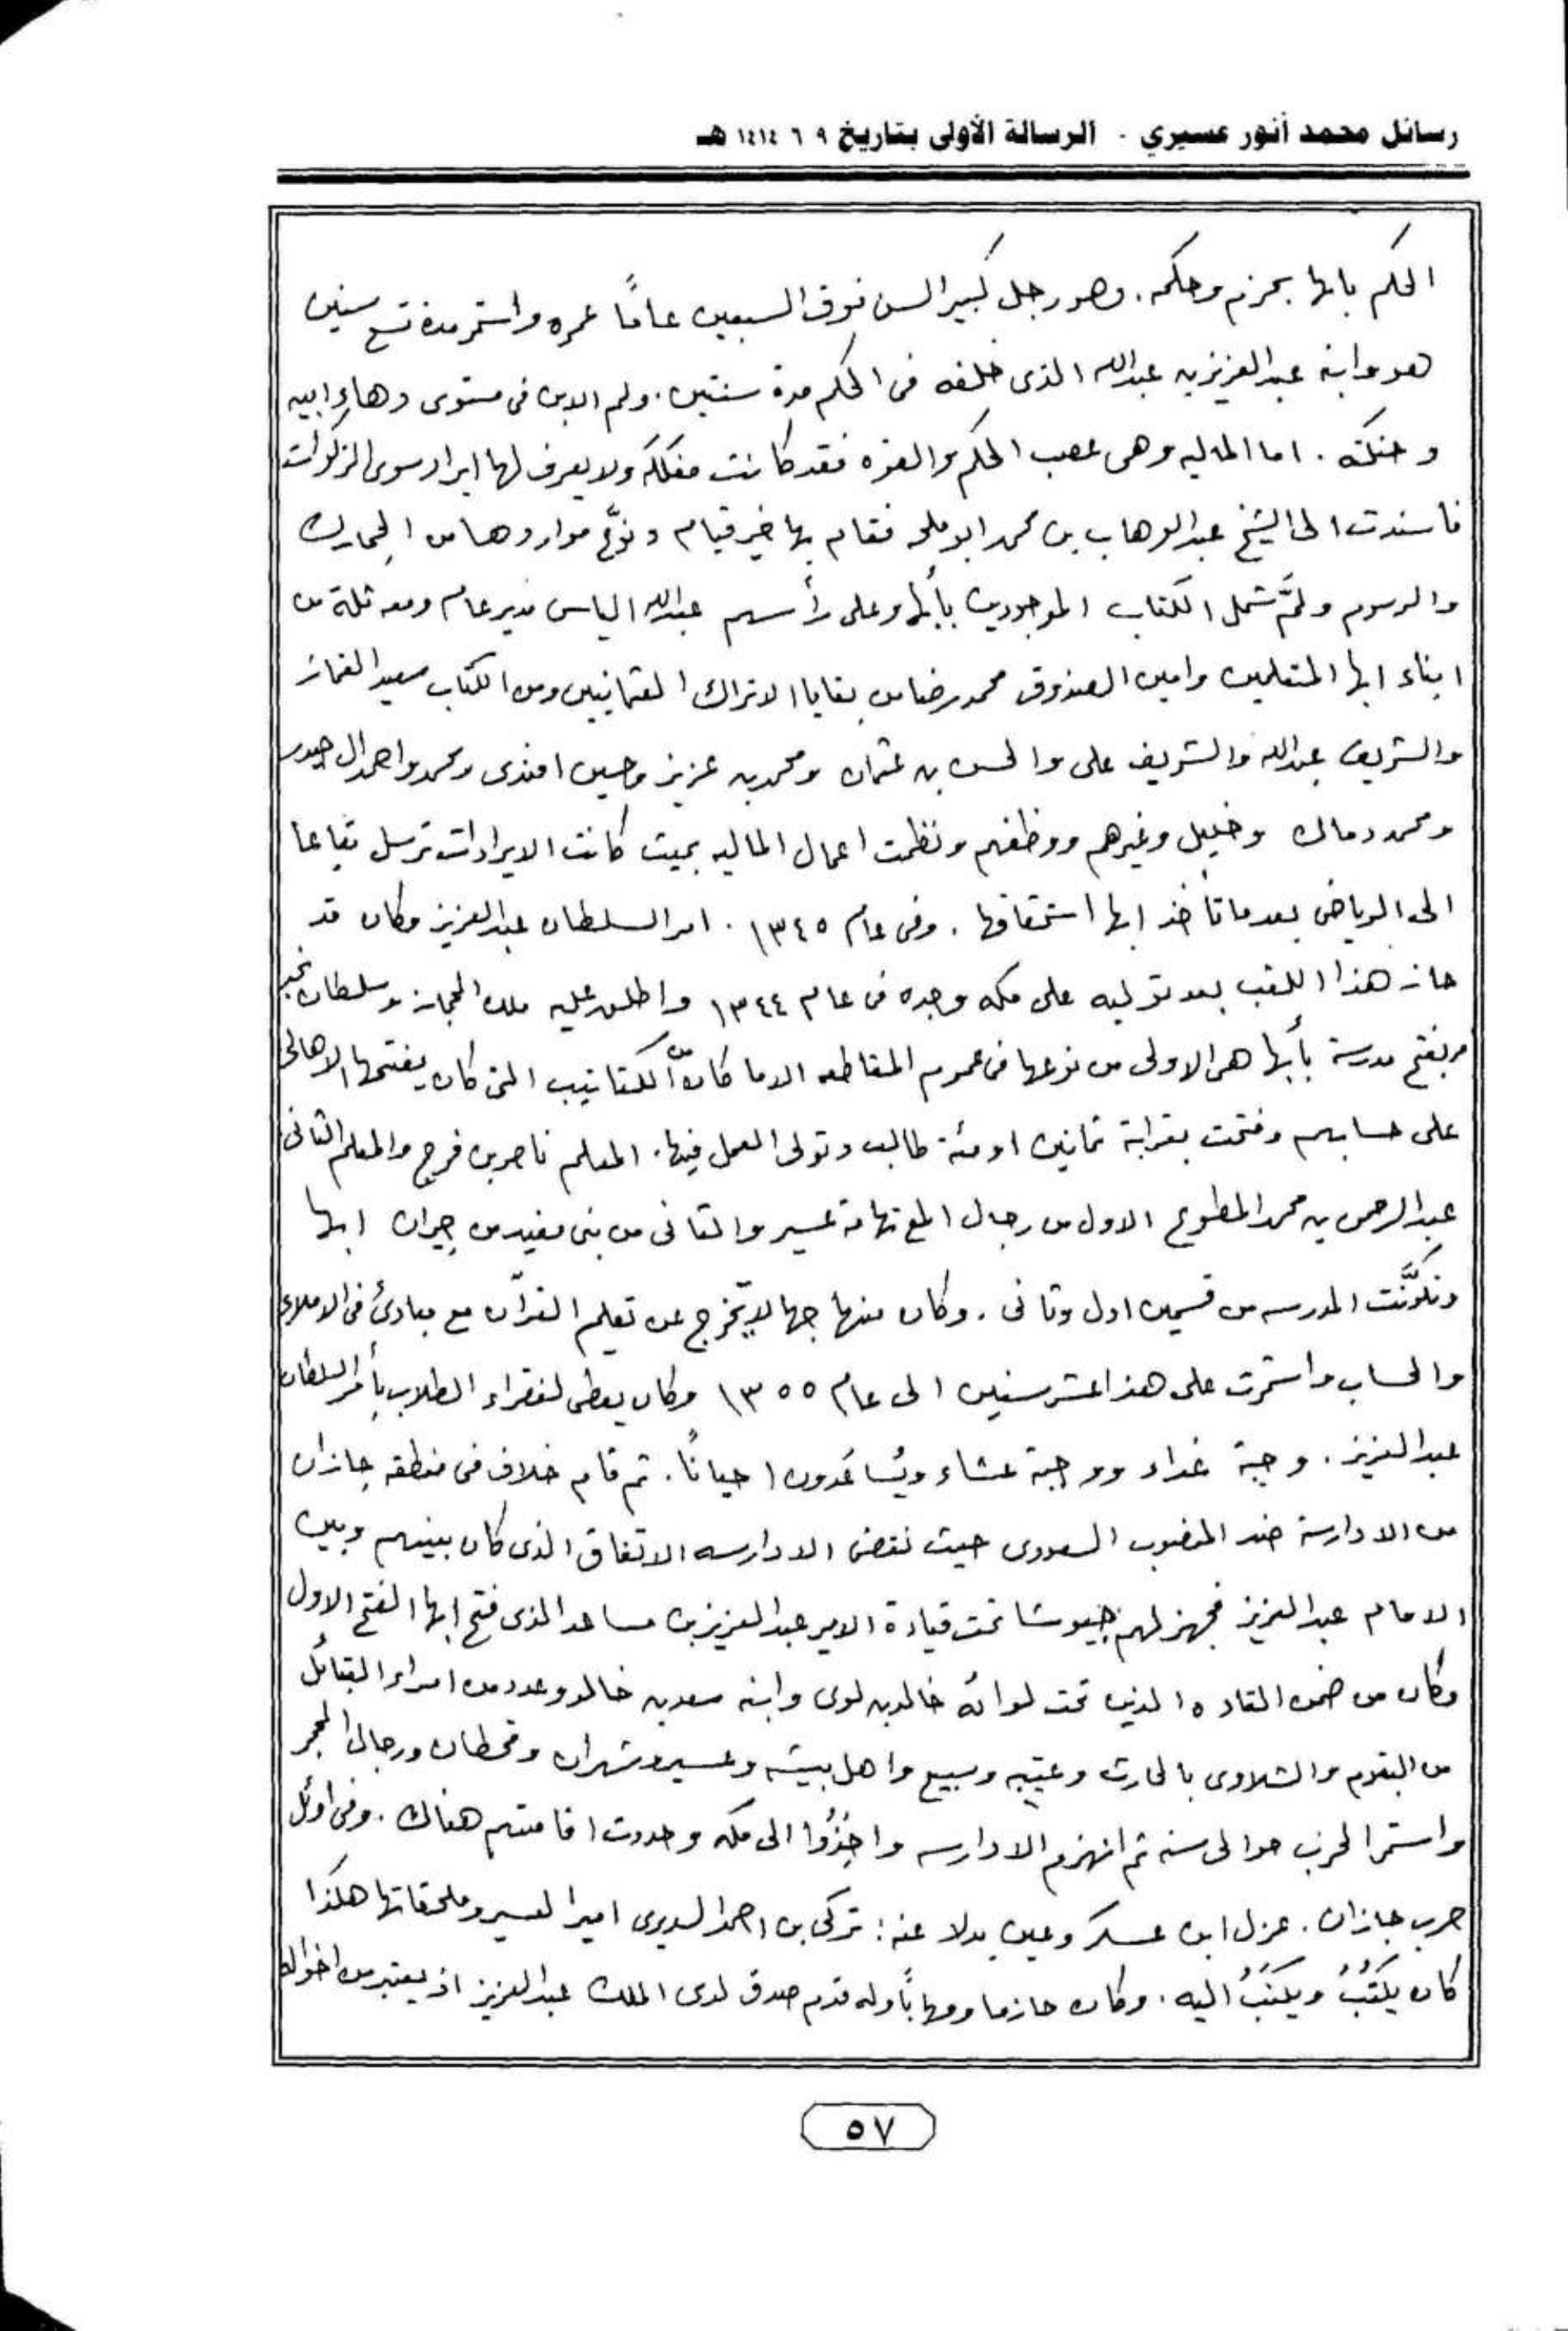 رسائل محمد أنور عسيري - الرسالة الأولى بتاريخ ٩ ٦ ١٤١٤ هـ
الحكم بابها بحزم وحكمه . وهو رجل كبير السن فوق السبعين عامًا عمره واستمر مدة تسع سنين
هو وابنه عبدالعزيز بن عبدالله الذى خلفه فى الحكم مدة سنتين . ولم الابن فى مستوى دهاء ابيه
وحنكته . اما الماليه وهى عصب الحكم والقوه فقد كانت مفككه ولا يعرف لها ايراد سوى الزكوات
فاسندت الى الشيخ عبدالوهاب بن محمد ابو ملحه فقام بها خير قيام ونوّع مواردها من الجمارك
والرسوم ولمَّ شمل الكتاب الموجودين بأبها وعلى رأسهم عبدالله الياس مدير عام ومعه ثلة من
ابناء ابها المتعلمين وامين الصندوق محمد رضا من بقايا الاتراك العثمانيين ومن الكتاب سعيد الغماز
والشريف عبدالله والشريف على والحسن بن عثمان ومحمد بن عزيز وحسين افندى ومحمد واحمد ال
ومحمد دمان وخليل وغيرهم ووظفهم ونظمت اعمال الماليه بحيث كانت الايرادات ترسل تباعا
الى الرياض بعد ما تأخذ ابها استحقاقها . وفى عام ١٣٤٥ . امر السلطان عبدالعزيز وكان قد
حاز هذا اللقب بعد توليه على مكه وجده فى عام ١٣٤٤ واطلق عليه ملك الحجاز وسلطان نجد
بفتح مدرسة بأبها هى الاولى من نوعها فى عموم المقاطعه الا ما كان منّ الكتاتيب التى كان يفتحها الاهالى
على حسابهم وفتحت بقرابة ثمانين او مئة طالب وتولى العمل فيها . المعلم ناصر بن فرج والمعلم الثانى
عبدالرحمن بن محمد المطوع الاول من رجال المع تهامة عسير والثانى من بنى مفيد من جيران ابها
وتكوَّنت المدرسه من قسمين اول وثانى . وكان منهاجها لا يخرج عن تعليم القرآن مع مبادئ فى الاملاء
والحساب واستمرت على هذا عشر سنين الى عام ١٣٥٥ وكان يعطى لفقراء الطلاب بأمر السلطان
عبدالعزيز . وجبة غداء ووجبة عشاء ويُساعَدون احيانًا . ثم قام خلاف فى منطقه جازان
من الادارسة ضد المنصوب السعودى حيث نقض الادارسه الاتفاق الذى كان بينهم وبين
الامام عبدالعزيز فجهز لهم جيوشا تحت قيادة الامير عبدالعزيز بن مساعد الذى فتح ابها الفتح الاول
وكان من ضمن القاده الذين تحت لوائه خالد بن لوى وابنه سعد بن خالد وعدد من امراء القبائل
من البقوم والشلاوى بالحارث وعتيبه وسبيع واهل بيشه وعسير وشهران وقحطان ورجال الحجر
واستمر الحرب حوالى سنه ثم انهزم الادارسه واخِذُوا الى مكه وحددت اقامتهم هناك . وفى اوئل
حرب جازان . عزل ابن عسكر وعين بدلا عنه : تركى بن احمد السديرى اميرا لعسير وملحقاتها هكذا
كان يكتبُ ويكتبُ اليه . وكان حازما ومهابًا وله قدم صدق لدى الملك عبدالعزيز اذ يعتبر من اخواله
٥٧